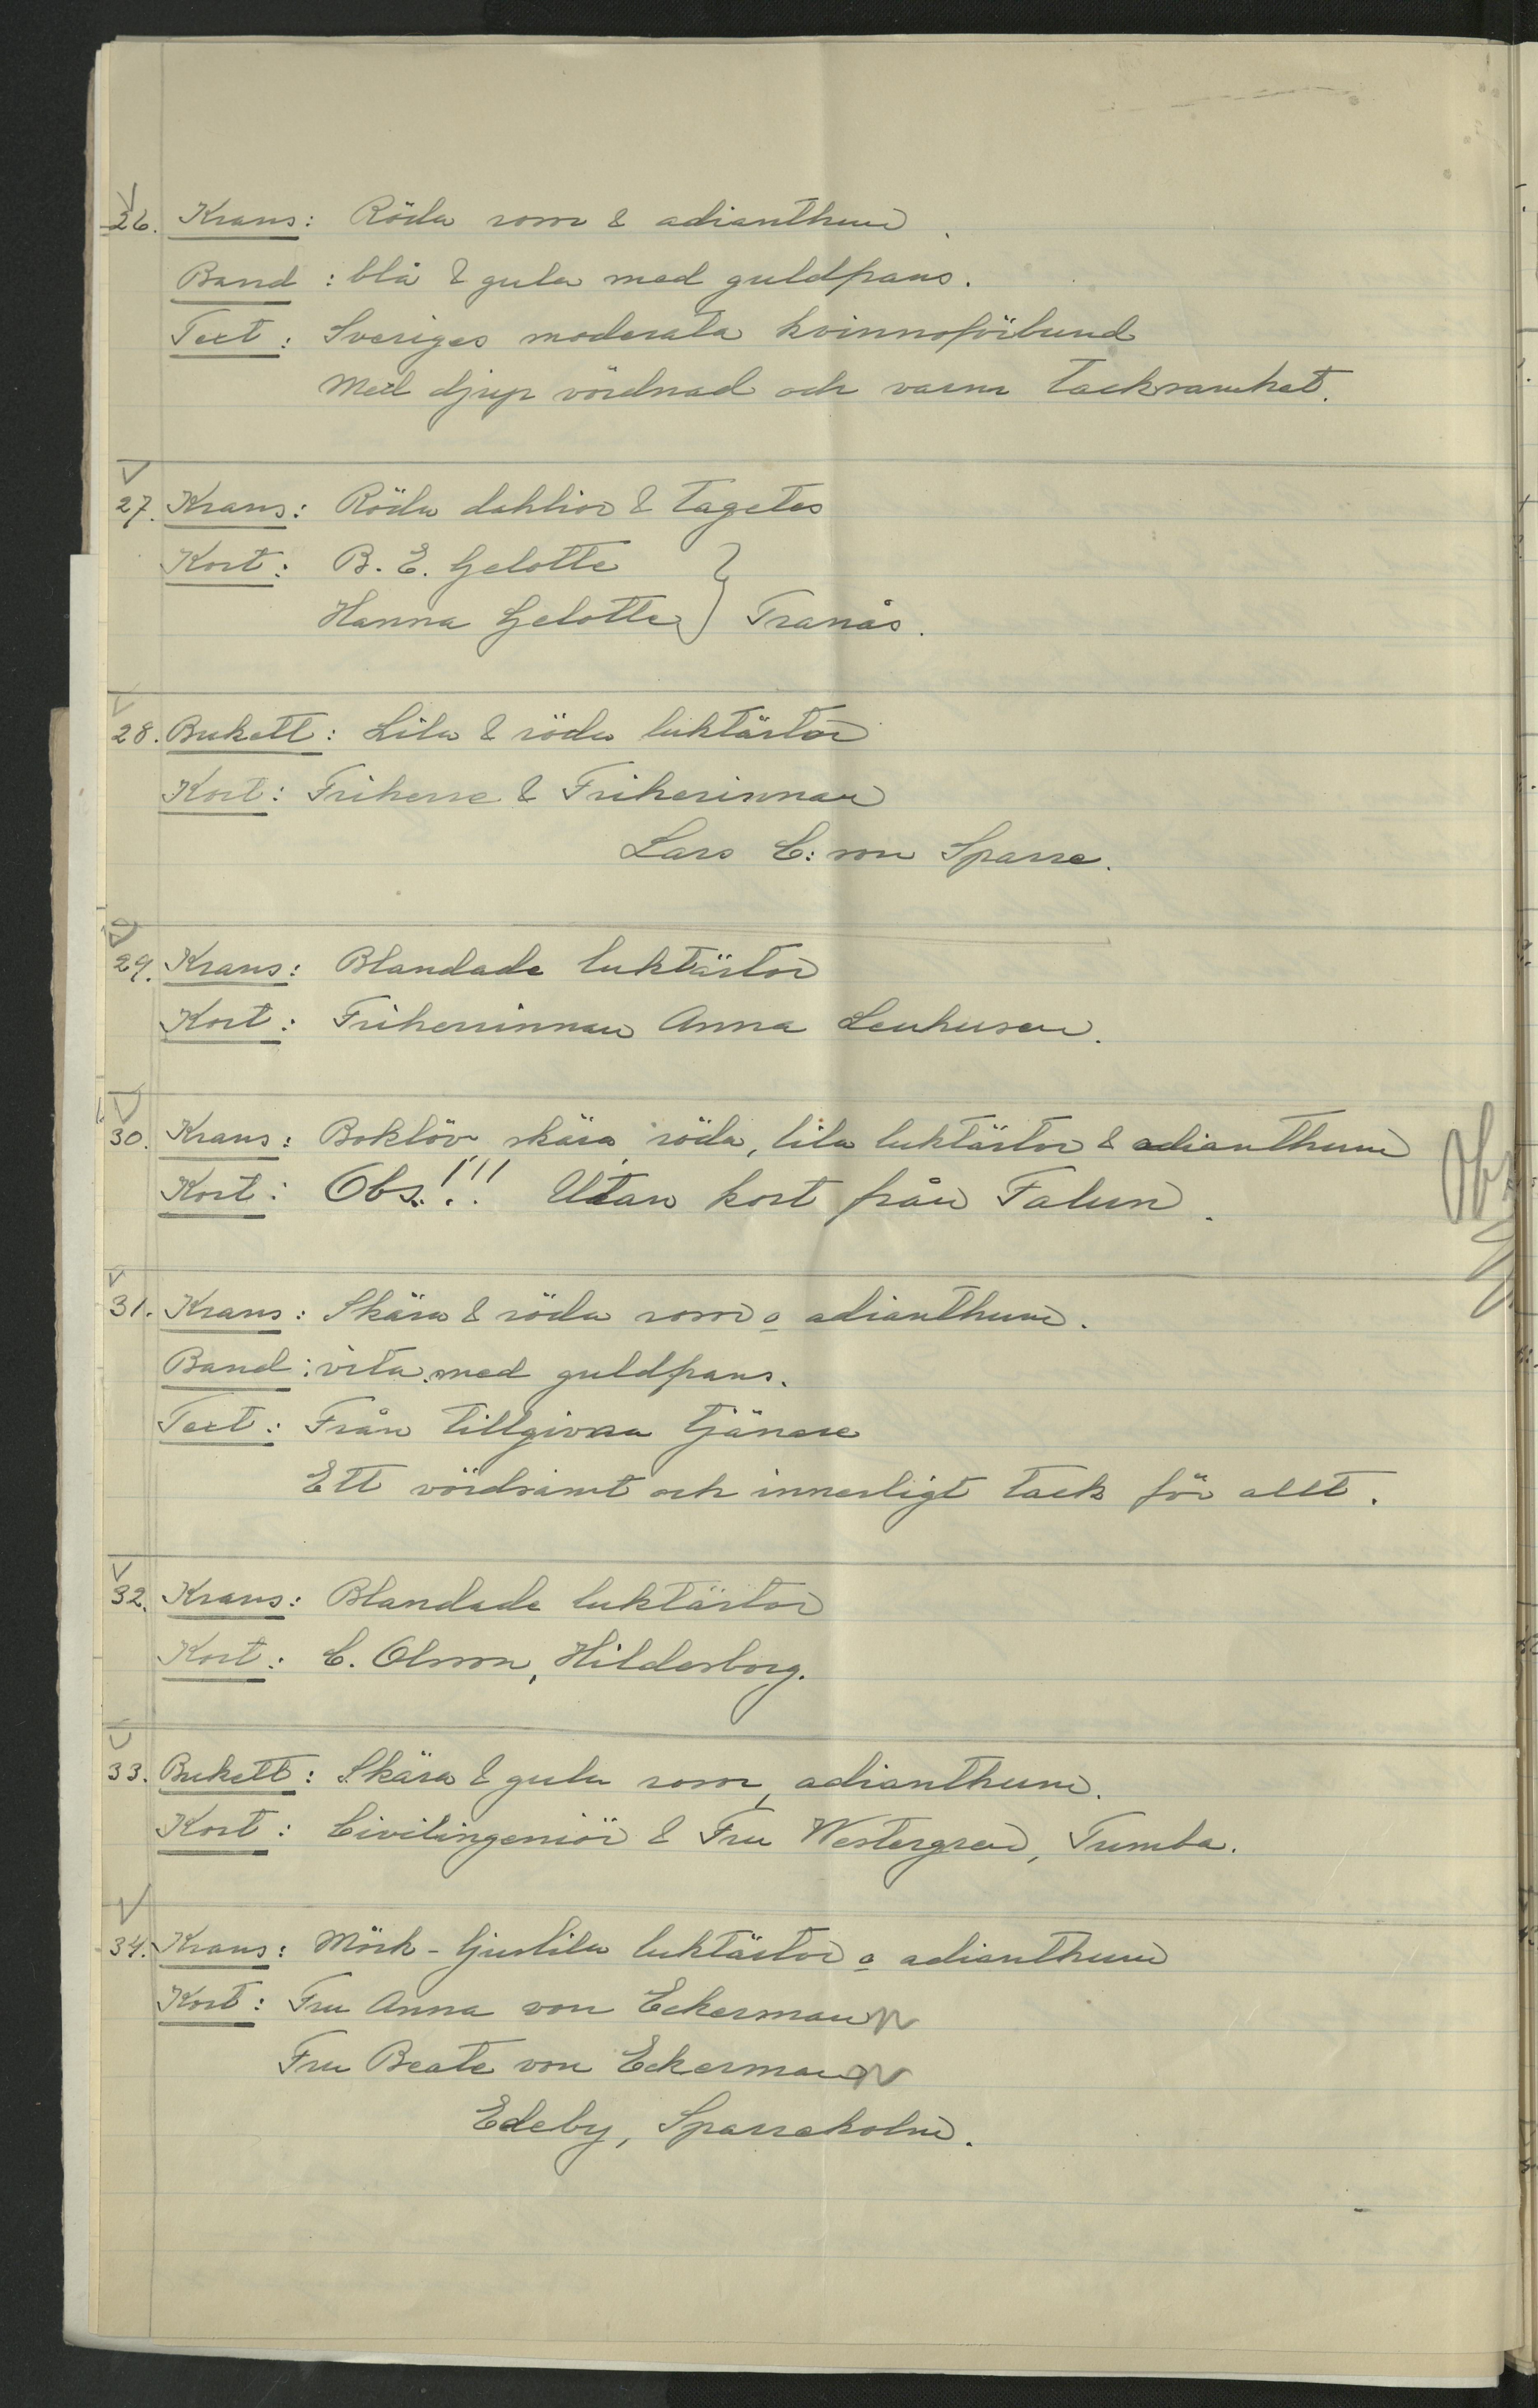 26. Krans: Röda rosor & adianthum.
Band: blå & gula med guldfrans.
Text: Sveriges moderata kvinnoförbund
Med djup vördnad och varm tacksamhet.
27. Krans: Röda dahlior & tagetes
Kort: B. E. Gelotte
Hanna Gelotte } Tranås.
28. Bukett: Lila & röda luktärtor
Kort: Friherre & Friherinnan
Lars C:son Sparre.
29. Krans: Blandade luktärtor
Kort: Friherrinnan Anna Leuhusen.
30. Krans: Boklöv, skära, röda, lila luktärtor & adianthum
Kort: Obs.!!! Utan kort från Falun.
Obs
31. Krans: Skära & röda rosor o adianthum.
Band: vita med guldfrans.
Text: Från tillgivna tjänare
Ett vördsamt och innerligt tack för allt.
32. Krans: Blandade luktärtor
Kort: C. Olsson, Hildesborg.
33. Bukett: Skära & gula rosor, adianthum.
Kort: Civilingeniör & Fru Westergren, Tumba.
34. Krans: Mörk-ljuslila luktärtor o adianthum
Kort: Fru Anna von Eckermann
Fru Beate von Eckermann
Edeby, Sparreholm.